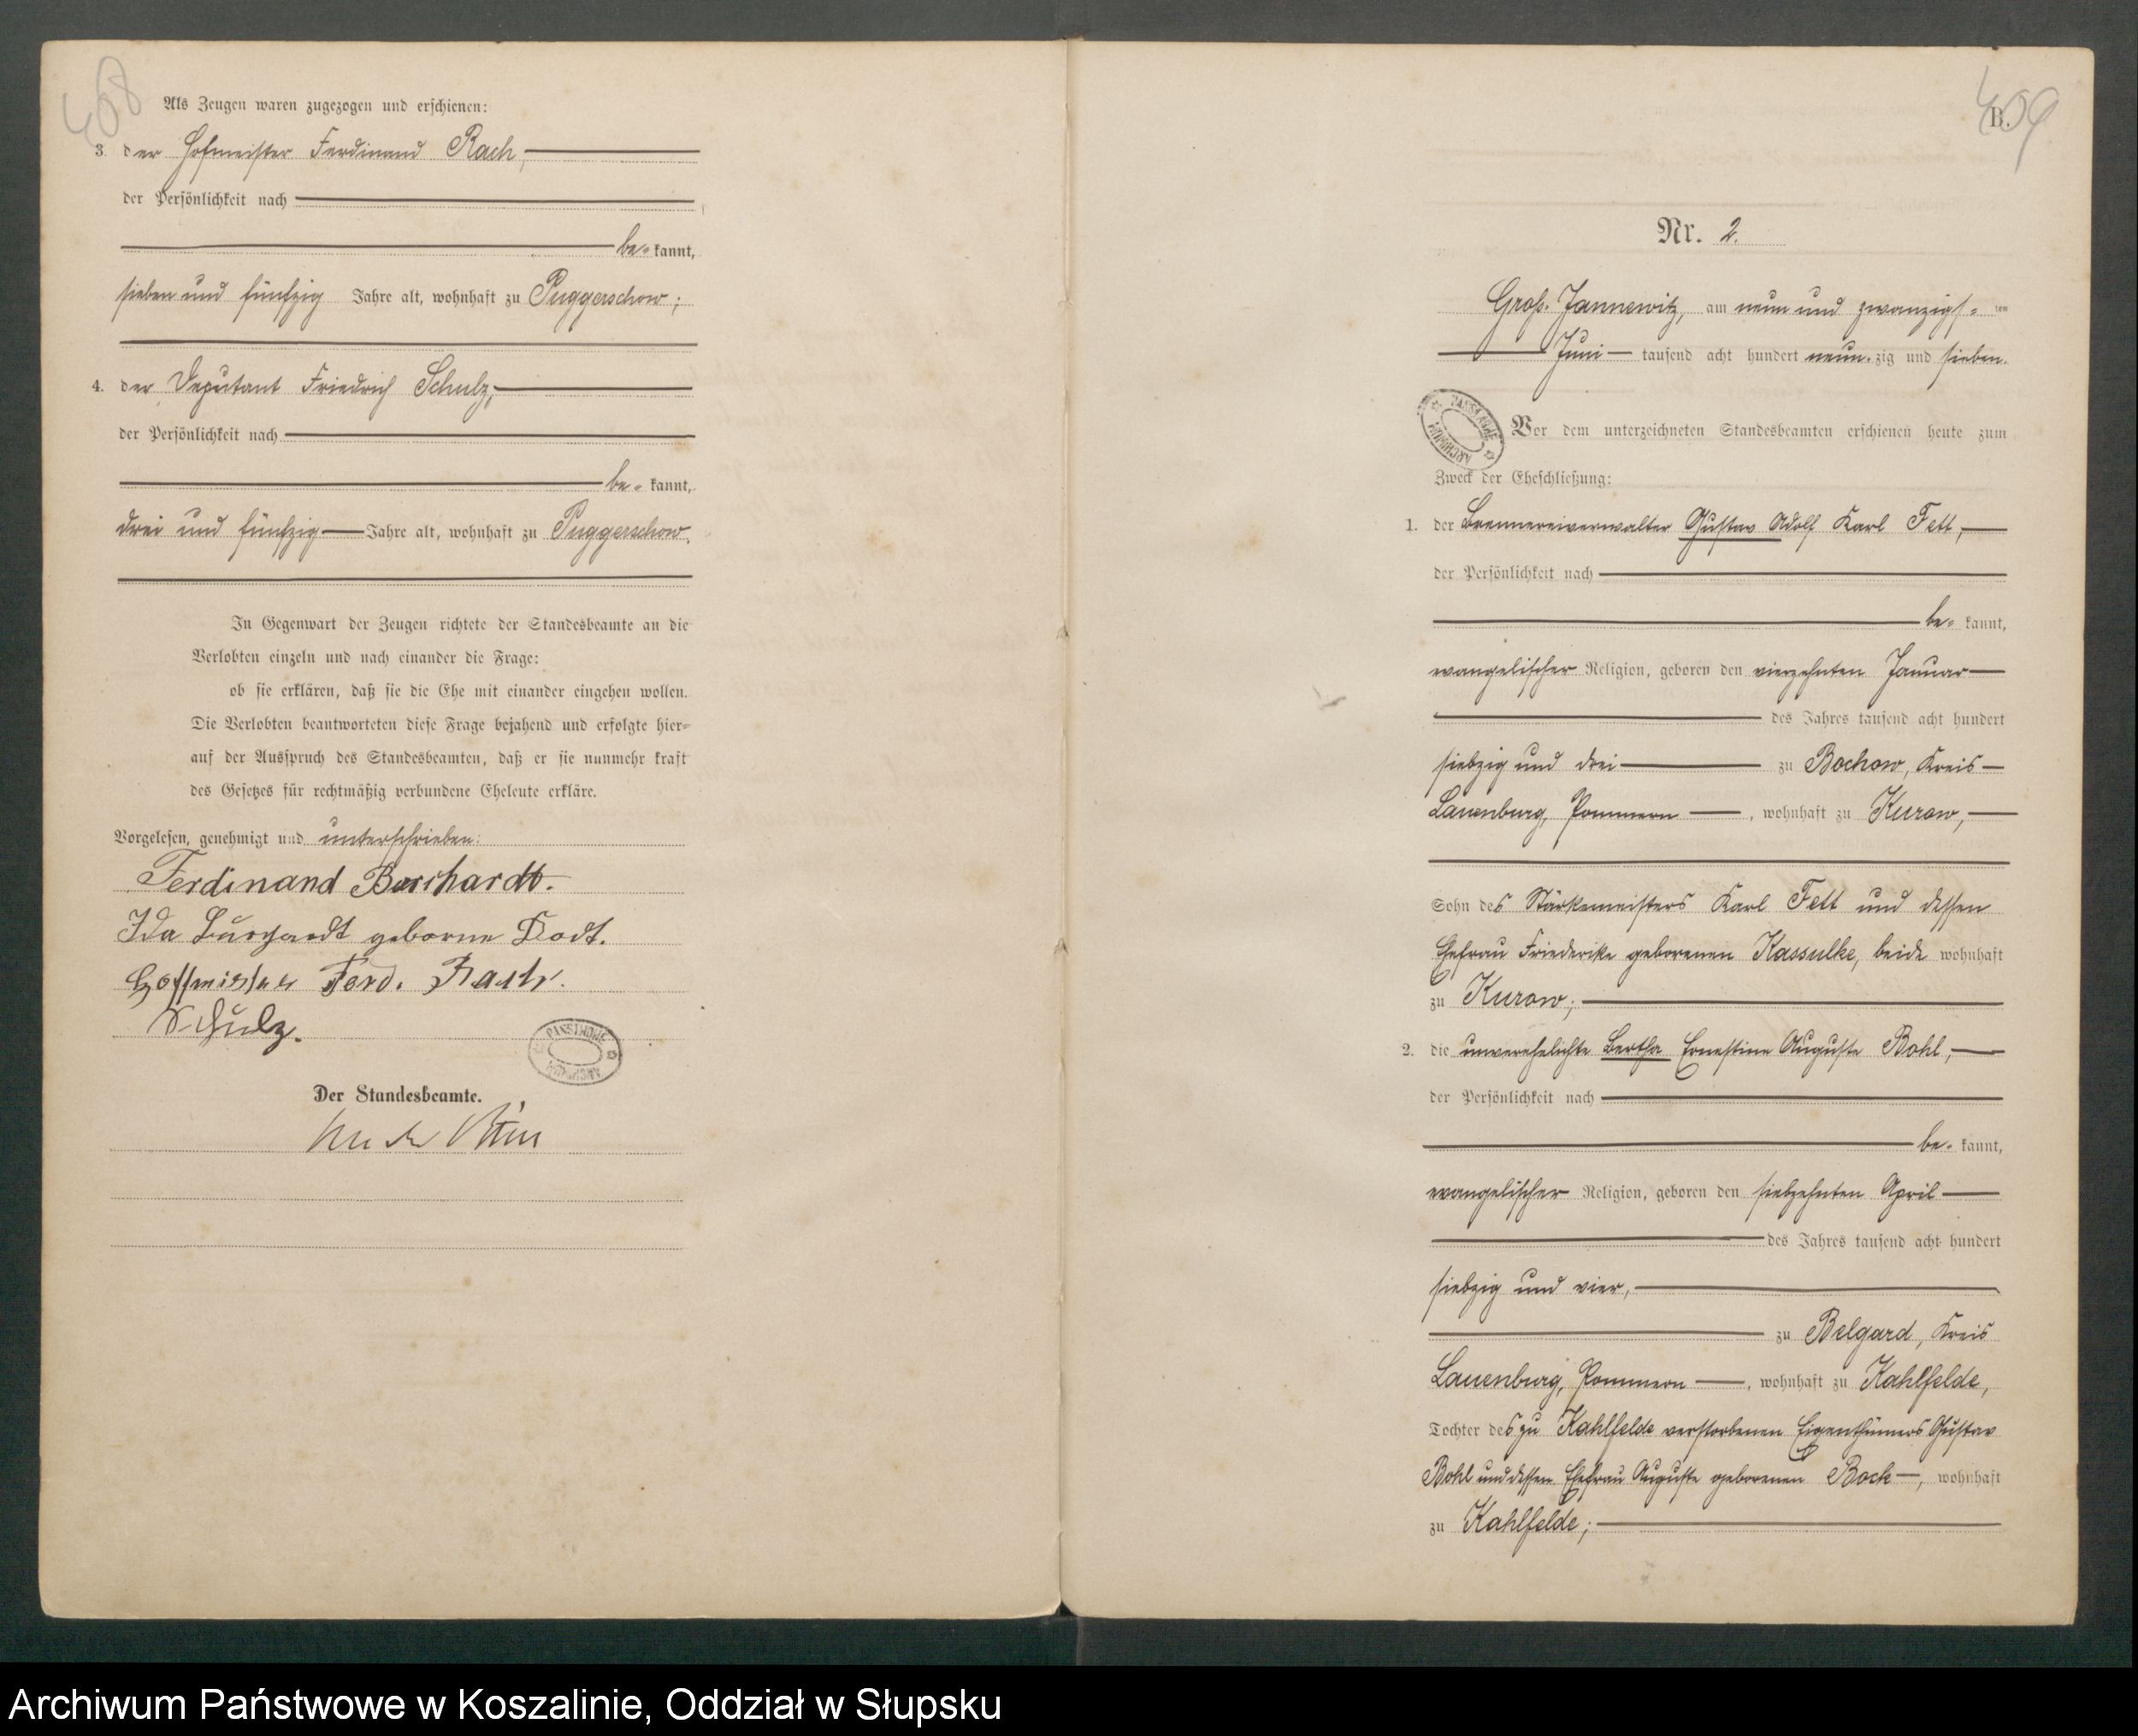 468
Als Zeugen waren zugezogen und erschienen:
3. der Hofmeister Ferdinand Rach,
der Persönlichkeit nach
be- kannt,
sieben und fünfzig Jahre alt, wohnhaft zu Puggerschow;
4. der Deputant Friedrich Schulz,
der Persönlichkeit nach
be- kannt,
drei und fünfzig Jahre alt, wohnhaft zu Puggerschow.
In Gegenwart der Zeugen richtete der Standesbeamte an die
Verlobten einzeln und nach einander die Frage:
ob sie erklären, daß sie die Ehe mit einander eingehen wollen.
Die Verlobten beantworteten diese Frage bejahend und erfolgte hier-
auf der Ausspruch des Standesbeamten, daß er sie nunmehr kraft
des Gesetzes für rechtmäßig verbundene Eheleute erkläre.
Vorgelesen, genehmigt und unterschrieben:
Ferdinand Burchardt.
Ida Burhardt geborne Dodt.
Hoffmeister Ferd. Rach.
Schulz.
PAŃSTWOWE ARCHIWUM
Der Standesbeamte.
409
B.
Nr. 2.
Groß-Jannewitz, am neun und zwanzigs- ten
Juni tausend acht hundert neun- zig und sieben.
PAŃSTWOWE ARCHIWUM
Vor dem unterzeichneten Standesbeamten erschienen heute zum
Zweck der Eheschließung:
1. der Brennereiverwalter Gustav Adolf Karl Fett,
der Persönlichkeit nach
be- kannt,
evangelischer Religion, geboren den vierzehnten Januar
des Jahres tausend acht hundert
siebzig und drei zu Bochow, Kreis
Lauenburg, Pommern, wohnhaft zu Kurow,
Sohn des Stärkemeisters Karl Fett und dessen
Ehefrau Friederike geborenen Kassulke, beide wohnhaft
zu Kurow;
2. die unverehelichte Bertha Ernestine Auguste Bohl,
der Persönlichkeit nach
be- kannt,
evangelischer Religion, geboren den siebzehnten April
des Jahres tausend acht hundert
siebzig und vier,
zu Belgard, Kreis
Lauenburg, Pommern, wohnhaft zu Kahlfelde,
Tochter des zu Kahlfelde verstorbenen Eigenthümers Gustav
Bohl und dessen Ehefrau Auguste geborenen Bock, wohnhaft
zu Kahlfelde;
Archiwum Państwowe w Koszalinie, Oddział w Słupsku